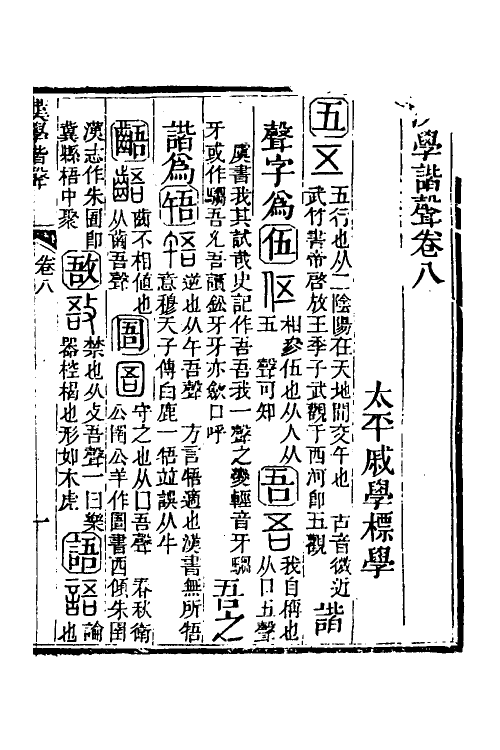 漢學諧聲卷八
太平戚學標學
五 五行也从二陰陽在天地間交午也 古音微近武竹書帝啓放王季子武觀于西河即五觀 諧
聲字爲伍 相參伍也从人从五 聲可知 吾 我自稱也从口五聲
虞書我其試哉史記作吾吾我一聲之變輕音牙騶牙或作騶吾允吾讀鉛牙牙亦歙口呼 吾之
諧爲啎 逆也从午吾聲 方言啎適也漢書無所啎意穆天子傳白鹿一啎並誤从牛
齬 齒不相值也从齒吾聲 圄 守之也从囗吾聲 春秋衛公圄公羊作圉書西傾朱圉
漢志作朱圄即冀縣梧中聚 敔 禁也从攴吾聲一曰樂器椌楬也形如木虎 語 論也
漢學諧聲 卷八 一